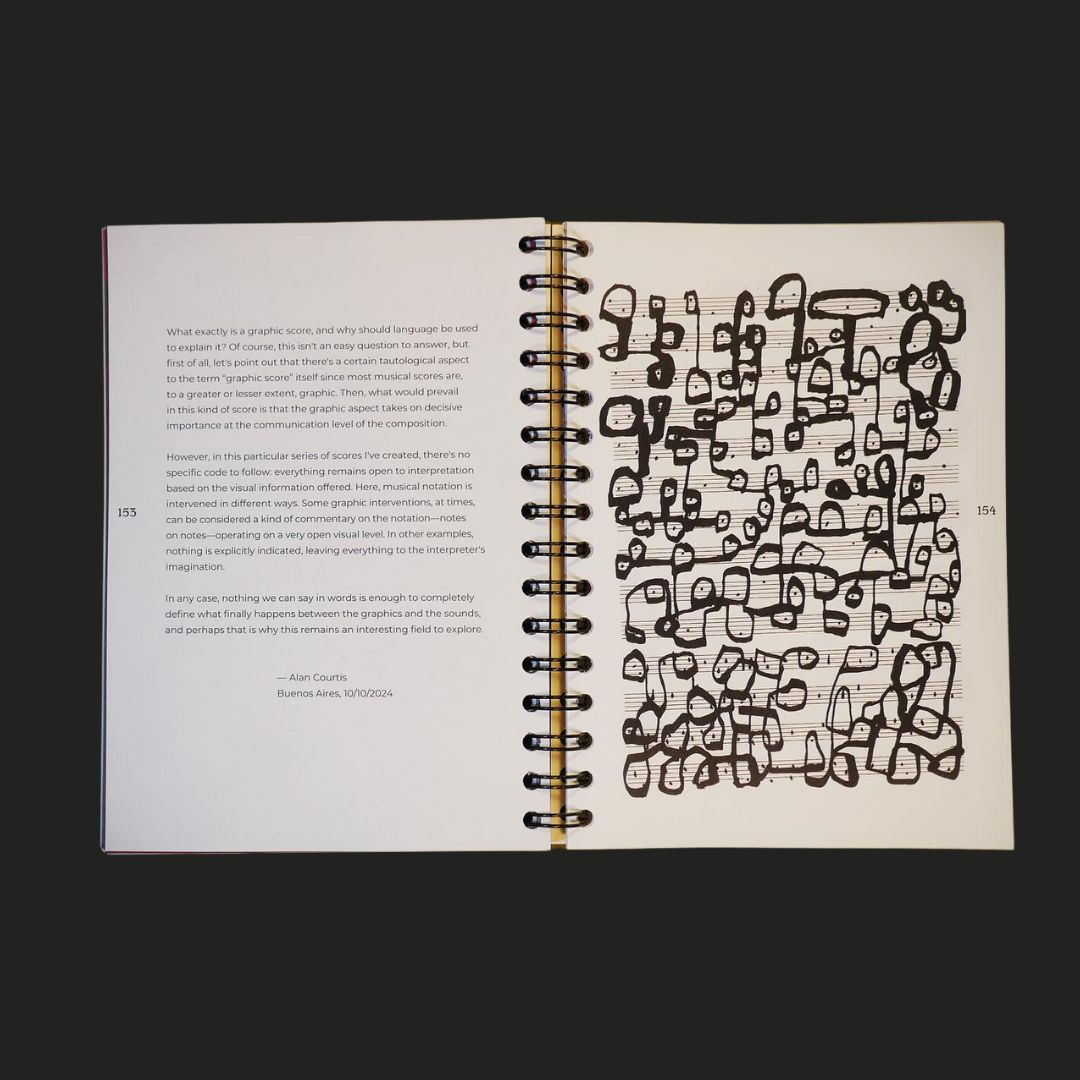 What exactly is a graphic score, and why should language be used
to explain it? Of course, this isn't an easy question to answer, but
first of all, let's point out that there's a certain tautological aspect
to the term “graphic score” itself since most musical scores are,
to a greater or lesser extent, graphic. Then, what would prevail
in this kind of score is that the graphic aspect takes on decisive
importance at the communication level of the composition.
However, in this particular series of scores I've created, there's no
specific code to follow: everything remains open to interpretation
based on the visual information offered. Here, musical notation is
intervened in different ways. Some graphic interventions, at times,
can be considered a kind of commentary on the notation—notes
on notes—operating on a very open visual level. In other examples,
nothing is explicitly indicated, leaving everything to the interpreter's
imagination.
In any case, nothing we can say in words is enough to completely
define what finally happens between the graphics and the sounds,
and perhaps that is why this remains an interesting field to explore.
— Alan Courtis
Buenos Aires, 10/10/2024
153
154